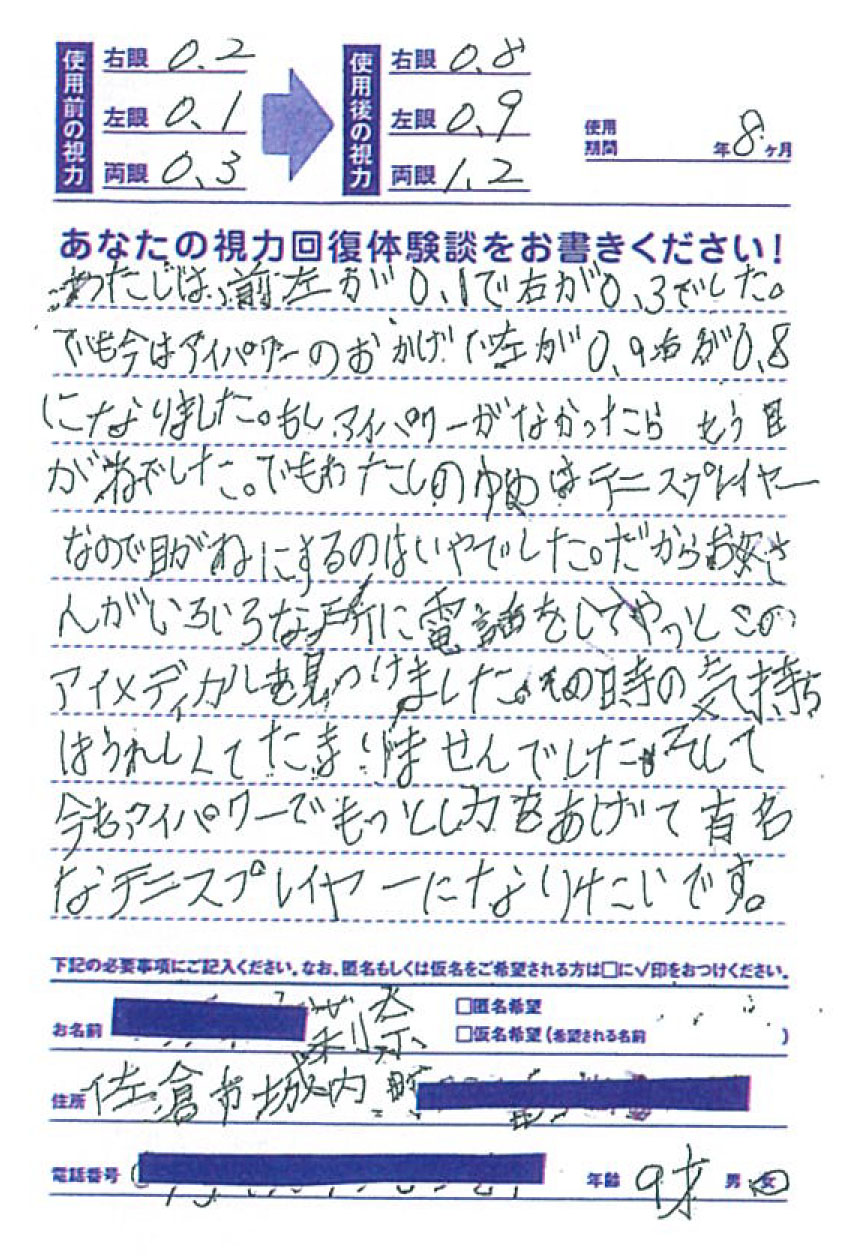 使用前の視力
右眼 0.2
左眼 0.1
両眼 0.3
使用後の視力
右眼 0.8
左眼 0.9
両眼 1.2
使用期間 年 8ヶ月
あなたの視力回復体験談をお書きください!
わたしは、前左が0.1で右が0.3でした。
でも今はアイパワーのおかげで左が0.9右が0.8
になりました。もしアイパワーがなかったら もう目
がねでした。でもわたしのゆめはテニスプレイヤー
なので目がねにするのはいやでした。だからお父さ
んがいろいろな所に電話をしてやっとこの
アイメディカルを見つけました。その時の気持ち
はうれしくてたまりませんでした。そして
今もアイパワーでもっとし力をあげて有名
なテニスプレイヤーになりたいです。
下記の必要事項にご記入ください。なお、匿名もしくは仮名をご希望される方は□に✓印をおつけください。
お名前
□匿名希望
□仮名希望(希望される名前 )
住所 佐倉市城内町
電話番号
年齢 9才 男・女